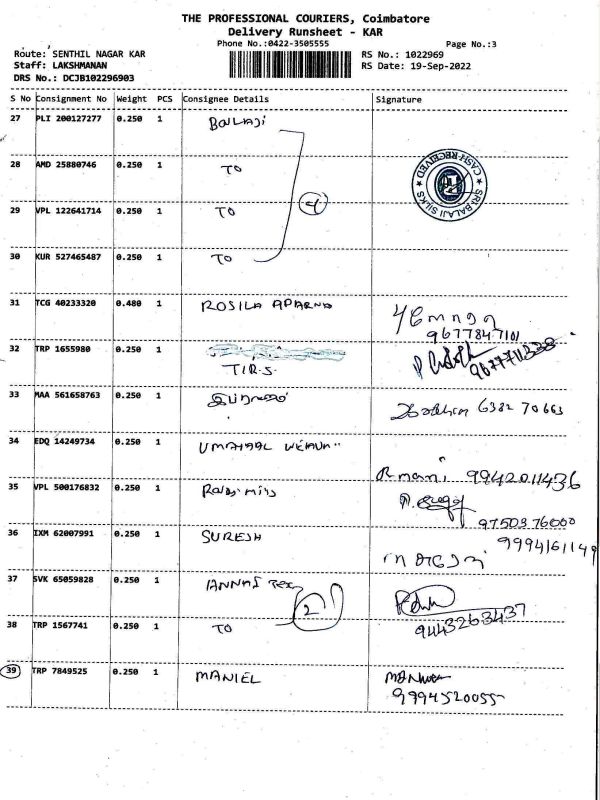 THE PROFESSIONAL COURIERS, Coimbatore
Delivery Runsheet - KAR
Phone No.:0422-3505555
Page No.:3
Route: SENTHIL NAGAR KAR
RS No.: 1022969
Staff: LAKSHMANAN
RS Date: 19-Sep-2022
DRS No.: DCJB102296903
S No Consignment No Weight PCS Consignee Details Signature
27 PLI 200127277 0.250 1
28 AMD 25880746 0.250 1 TO
CASH-RECEIVED
SRI BALAJI SILKS
29 VPL 122641714 0.250 1 TO 4
30 KUR 527465487 0.250 1 TO
31 TCG 40233320 0.480 1 ROSILA APARNA
9677847101
32 TRP 1655980 0.250 1 T.I.R.S. 9677711338
33 MAA 561658763 0.250 1 6382 70663
34 EDQ 14249734 0.250 1
R mani 9942011436
35 VPL 500176832 0.250 1
9750376000
36 IXM 62007991 0.250 1 SURESH 9994161149
37 SVK 65059828 0.250 1 ANNAI Tex 2
38 TRP 1567741 0.250 1 TO 9443263437
39 TRP 7849525 0.250 1 MANIEL
9994520055